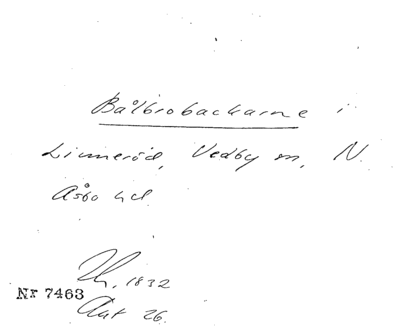 Bålbrobackarne i
Linneröd, Vedby sn, N.
Åsbo hd.
1832
Nr 7463
Akt 26.